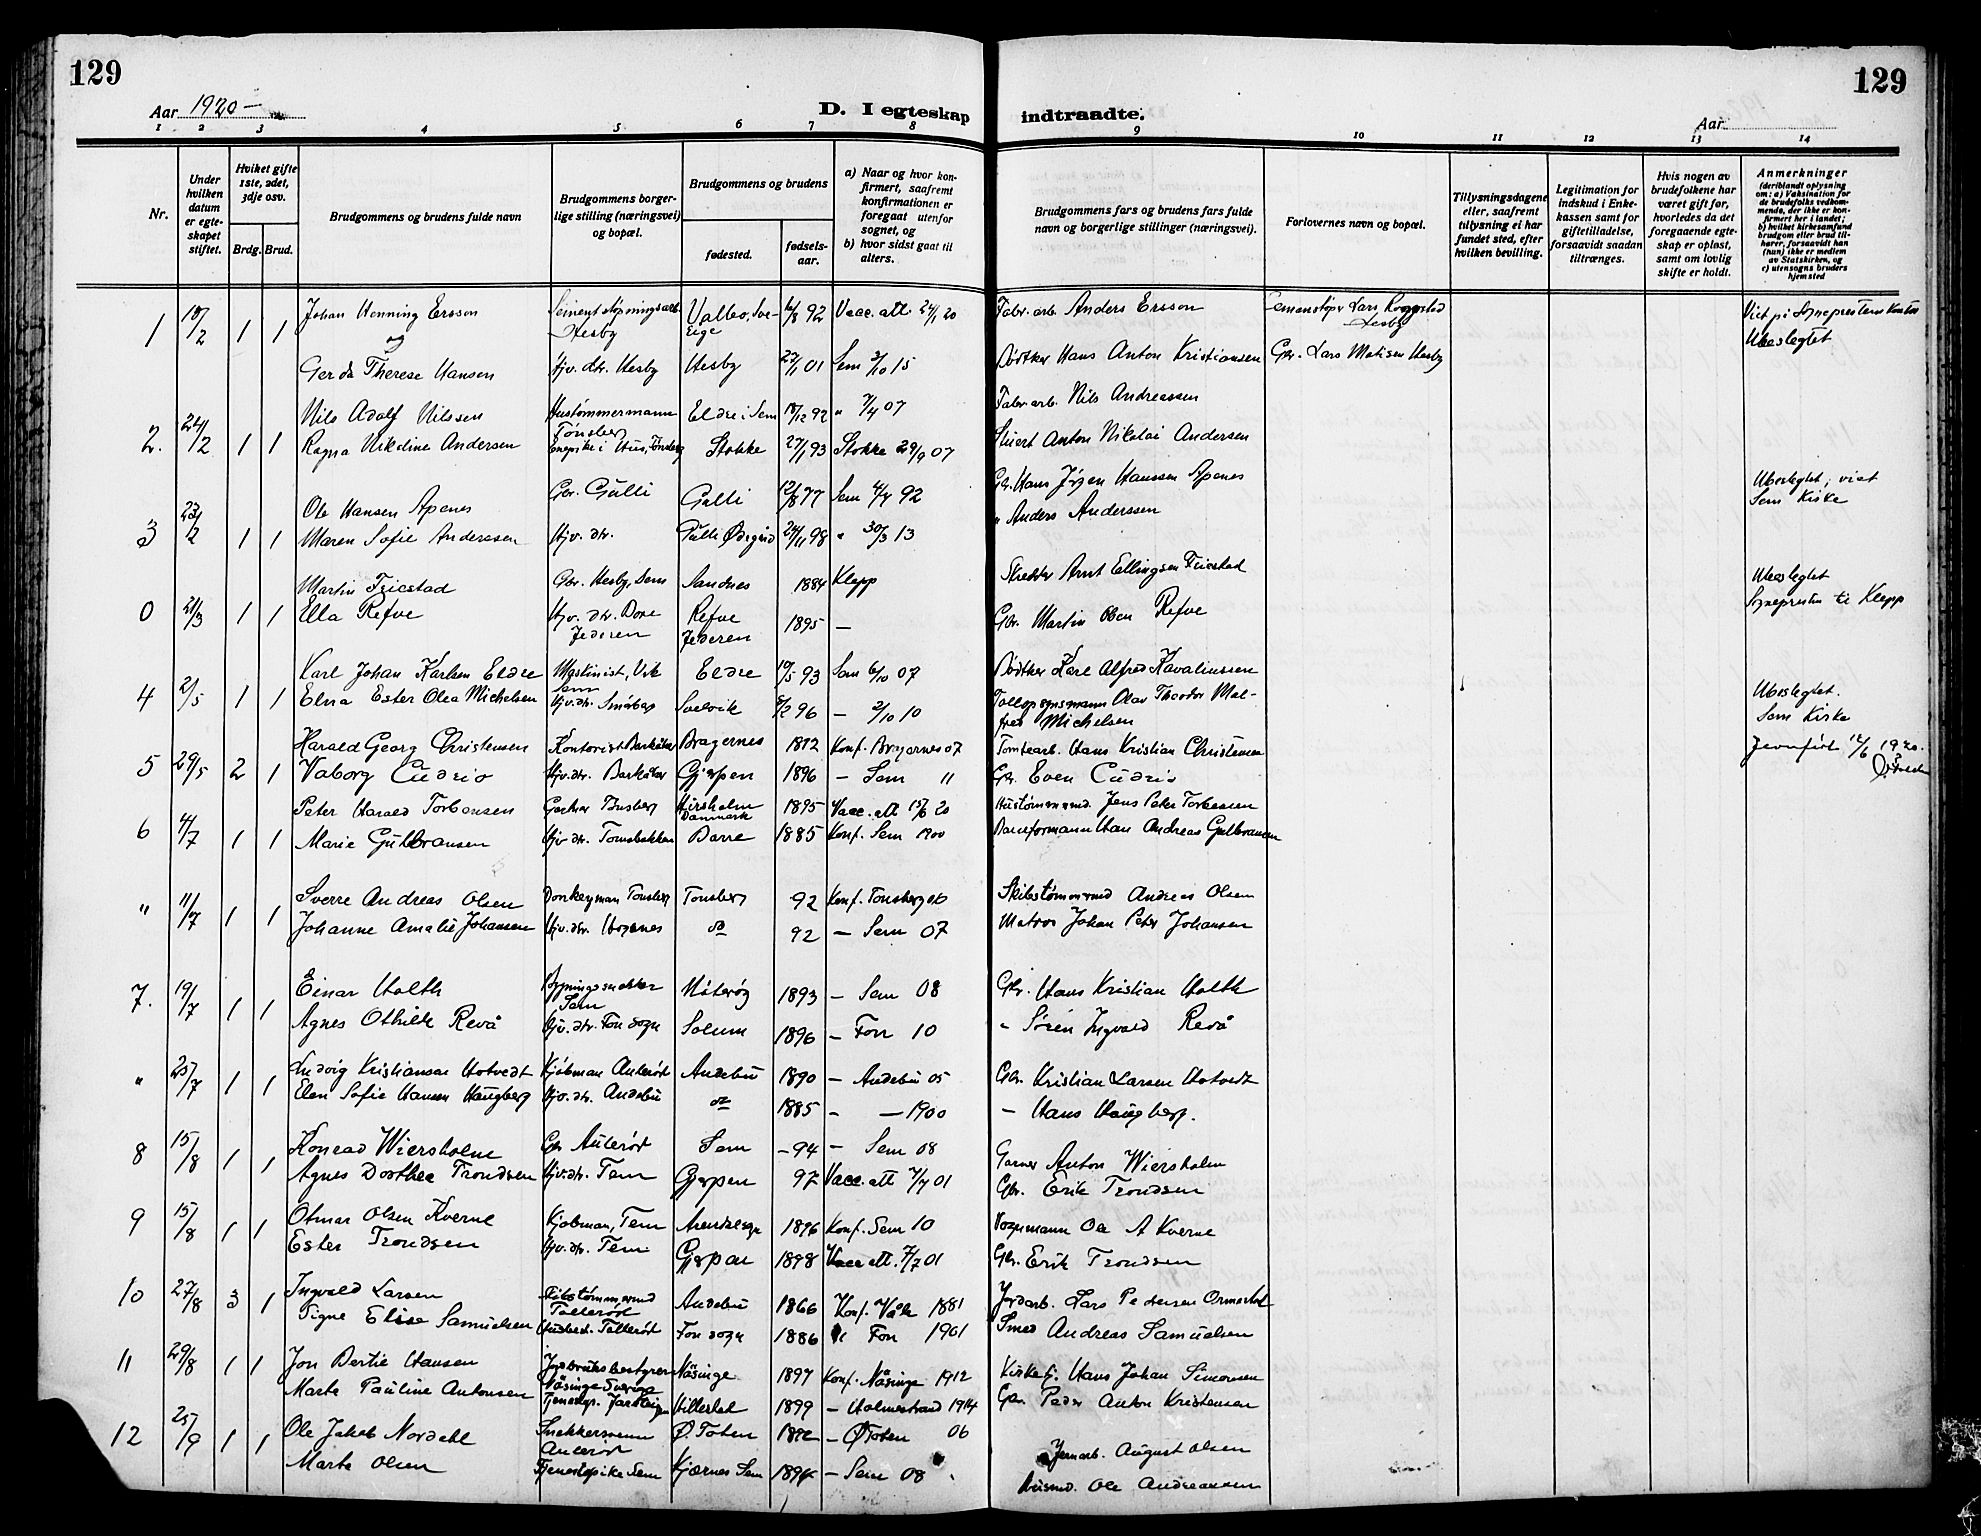 129
129
Aar 1920 –
D. I egteskap indtraadte.
Aar
1 2 3 4 5 6 7 8 9 10 11 12 13 14
Nr.
Under hvilken datum er egteskapet stiftet.
Hviket gifte 1ste, 2det, 3dje osv.
Brdg. Brud.
Brudgommens og brudens fulde navn
Brudgommens borgerlige stilling (næringsvei) og bopæl.
Brudgommens og brudens
fødested.
fødselsaar.
a) Naar og hvor konfirmert, saafremt konfirmationen er foregaat utenfor sognet, og
b) hvor sidst gaat til alters.
Brudgommens fars og brudens fars fulde navn og borgerlige stillinger (næringsvei).
Forlovernes navn og bopæl.
Tillysningsdagene eller, saafremt tillysning ei har fundet sted, efter hvilken bevilling.
Legitimation for indskud i Enkekassen samt for giftetilladelse, forsaavidt saadan tiltrænges.
Hvis nogen av brudefolkene har været gift før, hvorledes da det foregaaende egteskap er opløst, samt om lovlig skifte er holdt.
Anmerkninger
(deriblandt oplysning om: a) Vaksination for de brudefolks vedkommende, der ikke er konfirmert her i landet; b) hvilket kirkesamfund brudgom eller brud tilhører, forsaavidt han (hun) ikke er medlem av Statskirken, og c) utensogns bruders hjemsted
1 18/2 1 1 Johan Henning Ersson Hesby Valbo, Sveige 92 Vacc. att. 24/1 20 Fabr. arb. Anders Ersson Hesby
og Ubeslegtet
Gerda Therese Hansen Hjv. dtr. Hesby Hesby 27/11 01 Sem 3/10 15 Bødtker Hans Anton Kristiansen Gbr. Lars Matisen Hesby
2. 24/2 1 1 Nils Adolf Nilssen Hustømmermann Tønsberg Eldre i Sem 18/12 92 " 7/4 07 Fabr. arb. Nils Andreassen
Ragna Nikoline Andersen Stokke 27/1 93 Stokke 29/9 07 Anton Nikolai Andersen
3 23/2 1 1 Ole Hansen Apenes Gbr. Gulli Gulli 12/8 77 Sem 4/4 92 Gbr. Hans Jörgen Hanssen Apenes Ubeslegtet, viet Sem Kirke
Maren Sofie Anderssen Hjv. dtr. 24/11 98 " 30/3 13 " Anders Anderssen
0 21/3 1 1 Martin Fricstad Gbr. Hesby, Sem Sandnes 1884 Klepp Arnt Ellingsen Fricstad Ubeslegtet
Ella Refve Hjv. dtr. Bore Jederen Refve Jederen 1895 – Gbr. Martin Olsen Refve Sognepresten til Klepp
4 2/5 1 1 Karl Johan Karlsen Eldre Maskinist, Vik Sem Eldre 19/5 93 Sem 6/10 07 Bødtker Karl Alfred
Elna Ester Olea Michelsen Hjv. dtr. Smörberg Svelvik 8/2 96 – 2/10 10 Olav Theodor Malfred Michelsen Ubeslegtet. Sem Kirke
5 29/5 2 1 Harald Georg Christensen Kontorist Barkåker Bragernes 1872 Konf. Bragernes 07 Tomtearb. Hans Kristian Christensen Jevnført 12/6 1920.
Vaborg Cudrio Hjv. dtr. Barkåker Gjerpen 1896 – Sem 11 Gbr. Even Cudrio
6 4/7 1 1 Peter Harald Torbensen Gartner Tønsberg Hirsholm Danmark 1895 Vacc. att 15/6 20 Hustømmermd. Jens Peter Torbensen
Marie Gulbransen Hjv dtr. Tomsbakken Borre 1885 Konf. Sem 1900 Baneformann Hans Andreas Gulbransen
" 11/7 1 1 Sverre Andreas Olsen Donkeyman Tønsberg Tønsberg 92 Konf. Tønsberg 06 Skibstømmermd Andreas Olsen
Johanne Amalie Johansen Hjv. dtr. Hogsnes do 92 – Sem 07 Matros Johan Peter Johansen
7. 19/7 1 1 Einar Holth Bygningssnekker Sem Nøterøy 1893 – Sem 08 Gbr. Hans Kristian Holth
Agnes Othilde Revå Hjv. dtr. Fon sogn Solum 1896 – Fon 10 " Sören Ingvald Revå
" 25/7 1 1 Ludvig Kristiansen Hotvedt Kjöbman Aulerød Andebu 1890 – Andebu 05 Gbr. Kristian Larsen Hotvedt
Elen Sofie Hansen Haugberg Hjv. dtr. Andebu do 1885 – – 1900 – Hans Haugberg.
8 15/8 1 1 Konrad Wiersholm Gbr Aulerød Sem – 94 – Sem 08 Garver Anton Wiersholm
Agnes Dorthea Trondsen Hjv. dtr. Tem Gjerpen 97 Vacc. att 7/7 01 Gbr. Erik Trondsen
9 15/8 1 1 Otmar Olsen Kverne Kjøbman, Tem 1896 Konf. Sem 10 Vognmann Ole A Kverne
Ester Trondsen Hjv. dtr. Tem Gjerpen 1898 Vacc att. 7/7 01 Gbr. Erik Trondsen
10 27/8 3 1 Ingvald Larsen Skibstømmermd Tallerød Andebu 1866 Konf. Våle 1881 Jordarb. Lars Pedersen
Signe Elise Samuelsen Tallerød Fon sogn 1886 Fon 1901 Smed Andreas Samuelsen
11 29/8 1 1 Jon Bertil Hansen Jordbruksbestyrer Näsinge Sverige Näsinge 1897 Konf. Näsinge 1912 Hans Johan Simonsen
Marta Pauline Antonsen Hillestad 1899 – Holmestrand 1914 Gbr Peder Anton Kristensen
12 25/9 1 1 Ole Jakob Nordahl Snekkersvenn Aulerød Ø. Toten 1892 – Ø Toten 06 Jernarb. August Olsen
Marta Olsen Tjenestepike Sem Kjærnes Sem 1894 – Sem 08 Ole Andreassen